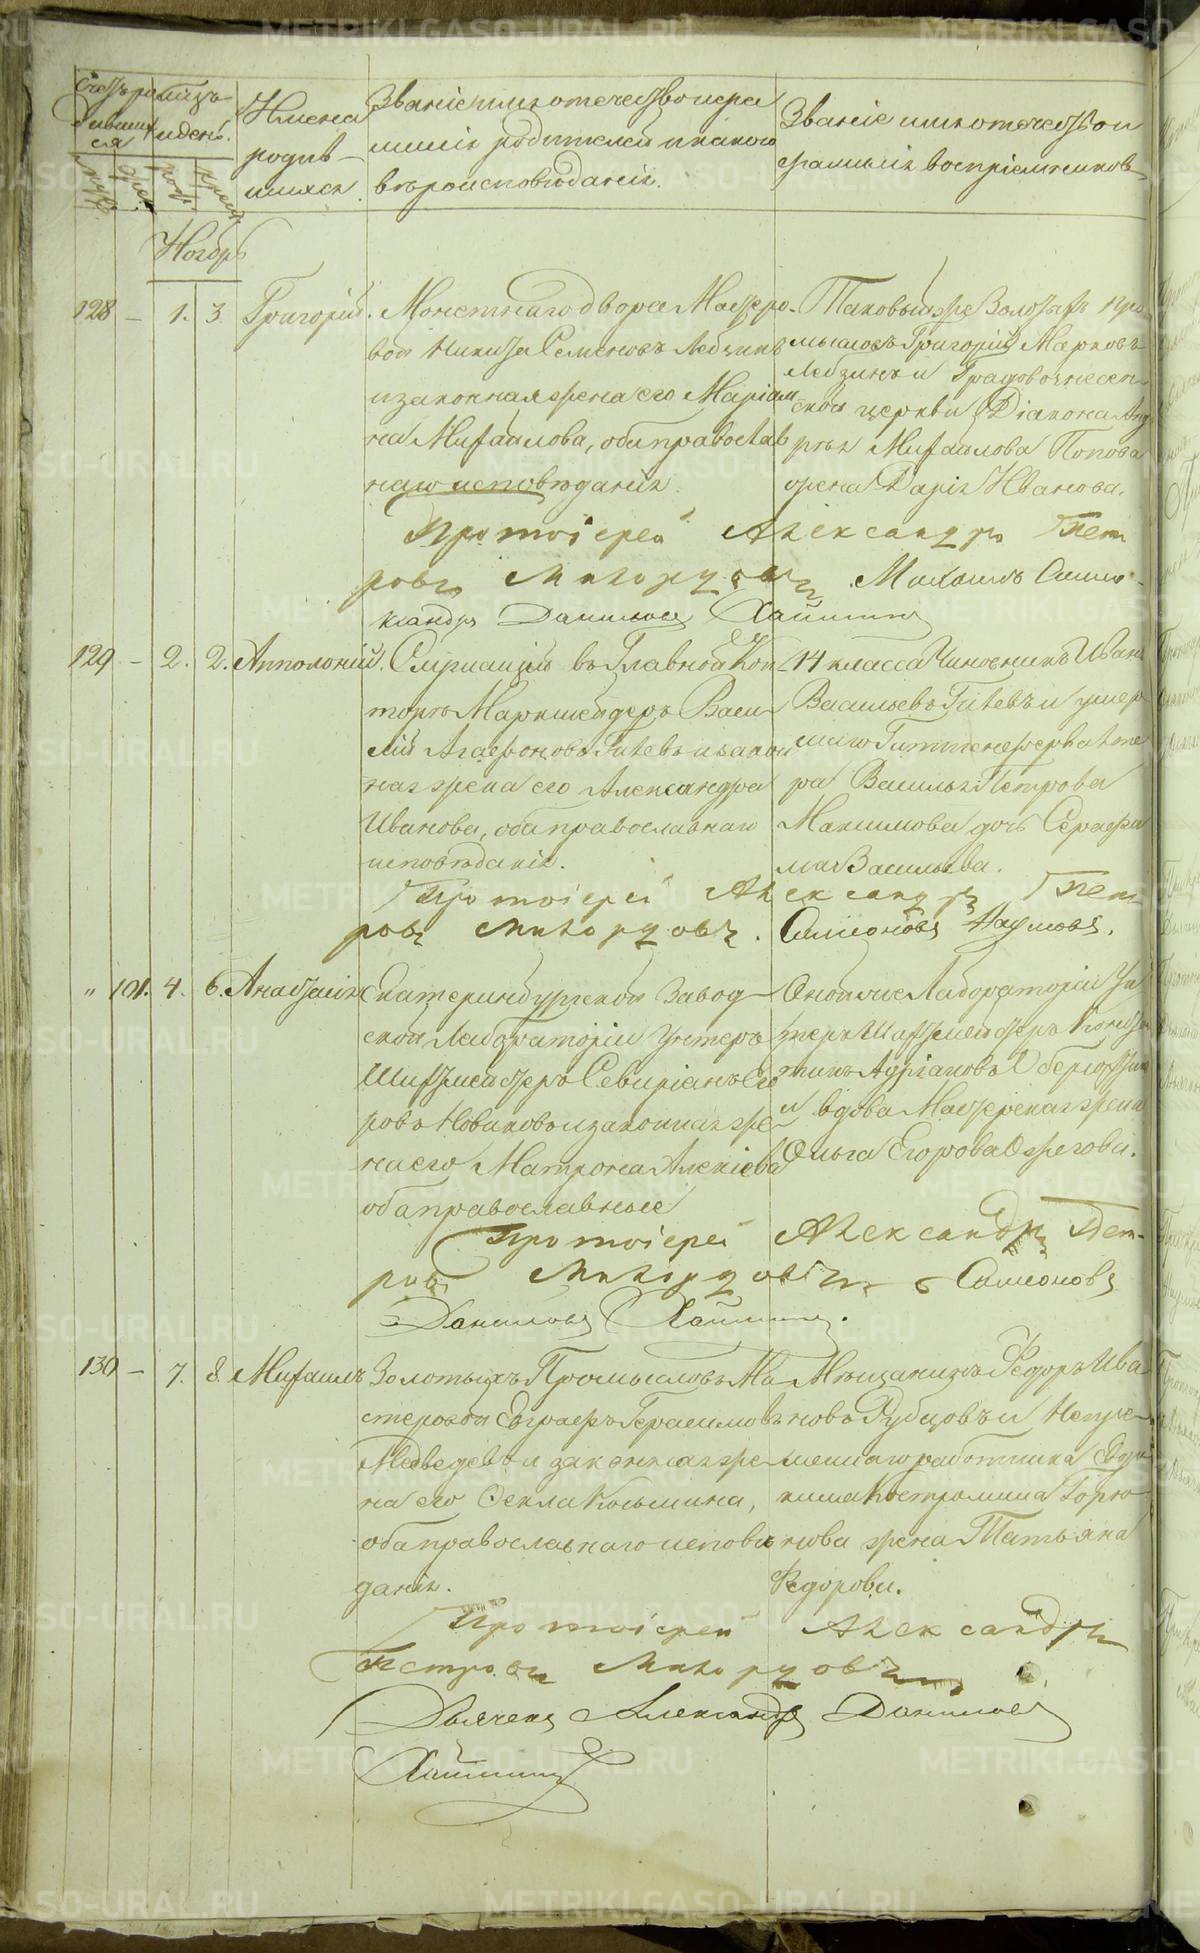 Счетъ ро
дивших
ся
муж.
жен.
мѣсяцъ
и день.
рожд.
крещ.
Имена
родив-
шихся.
Званіе имя отечество и фа
миліи родителей и какого
вѣроисповѣданія.
Званіе имя отечество и
фамилія воспріемниковъ
Ноябрь
128 – 1. 3. Григорій.
Монетнаго двора Мастеро-
вой Никита Семеновъ Лебзинъ
и законная жена его Маріам
на Михайлова, оба православ
наго исповѣданія.
Таковый же Золотыхъ про
мысловъ Григорій Марковъ
Лебзинъ и Градовознесен
ской церкви Діакона Анд
рея Михайлова Попова
жена Дарія Иванова.
Протоіерей Александръ Пет
ровъ
Данилов
129 – 2. 2. Апполоній.
въ Главной Кон
торѣ Маркшейдеръ Васи
лій Агафоновъ Гилевъ и закон
ная жена его Александра
Иванова, оба православнаго
исповѣданія.
14 класса Чиновникъ Иван
Васильевъ Гилевъ и умер
шаго Гиттенфервалте
ра Василья Петрова
Максимова дочь Серафи
ма Васильева.
Протоіерей Александръ Пет
ровъ
Симеоновъ Наумовъ.
" 101. 4. 6. Анастасія
Екатеринбургской Завод
ской Лабораторіи Унтеръ
Шихтмейстеръ Северіанъ Его
ровъ Новиковъ и законная же
на его Матрона Алексіева
оба православные
Оной же Лабораторіи Ун
теръ Шихтмейстеръ Конста
тинъ Адріановъ
и вдова Мастерская жена
Ольга Егорова
Протоіерей Александръ Пет-
ровъ
Симеоновъ
Даниловъ
130 – 7. 8. Михаилъ
Золотыхъ Промысловъ Ма
стеровой Евграфъ Герасимовъ
Медведевъ и законная же
на его Фекла Косьмина,
оба православнаго исповѣ
данія.
Мѣщанинъ Федоръ Ива
новъ Рубцовъ и Непре
меннаго работника Евдо
кима Костромина Горю
нова жена Татьяна
Федорова.
Протоіерей Александръ
Петровъ
Дьячекъ Александръ Данилов